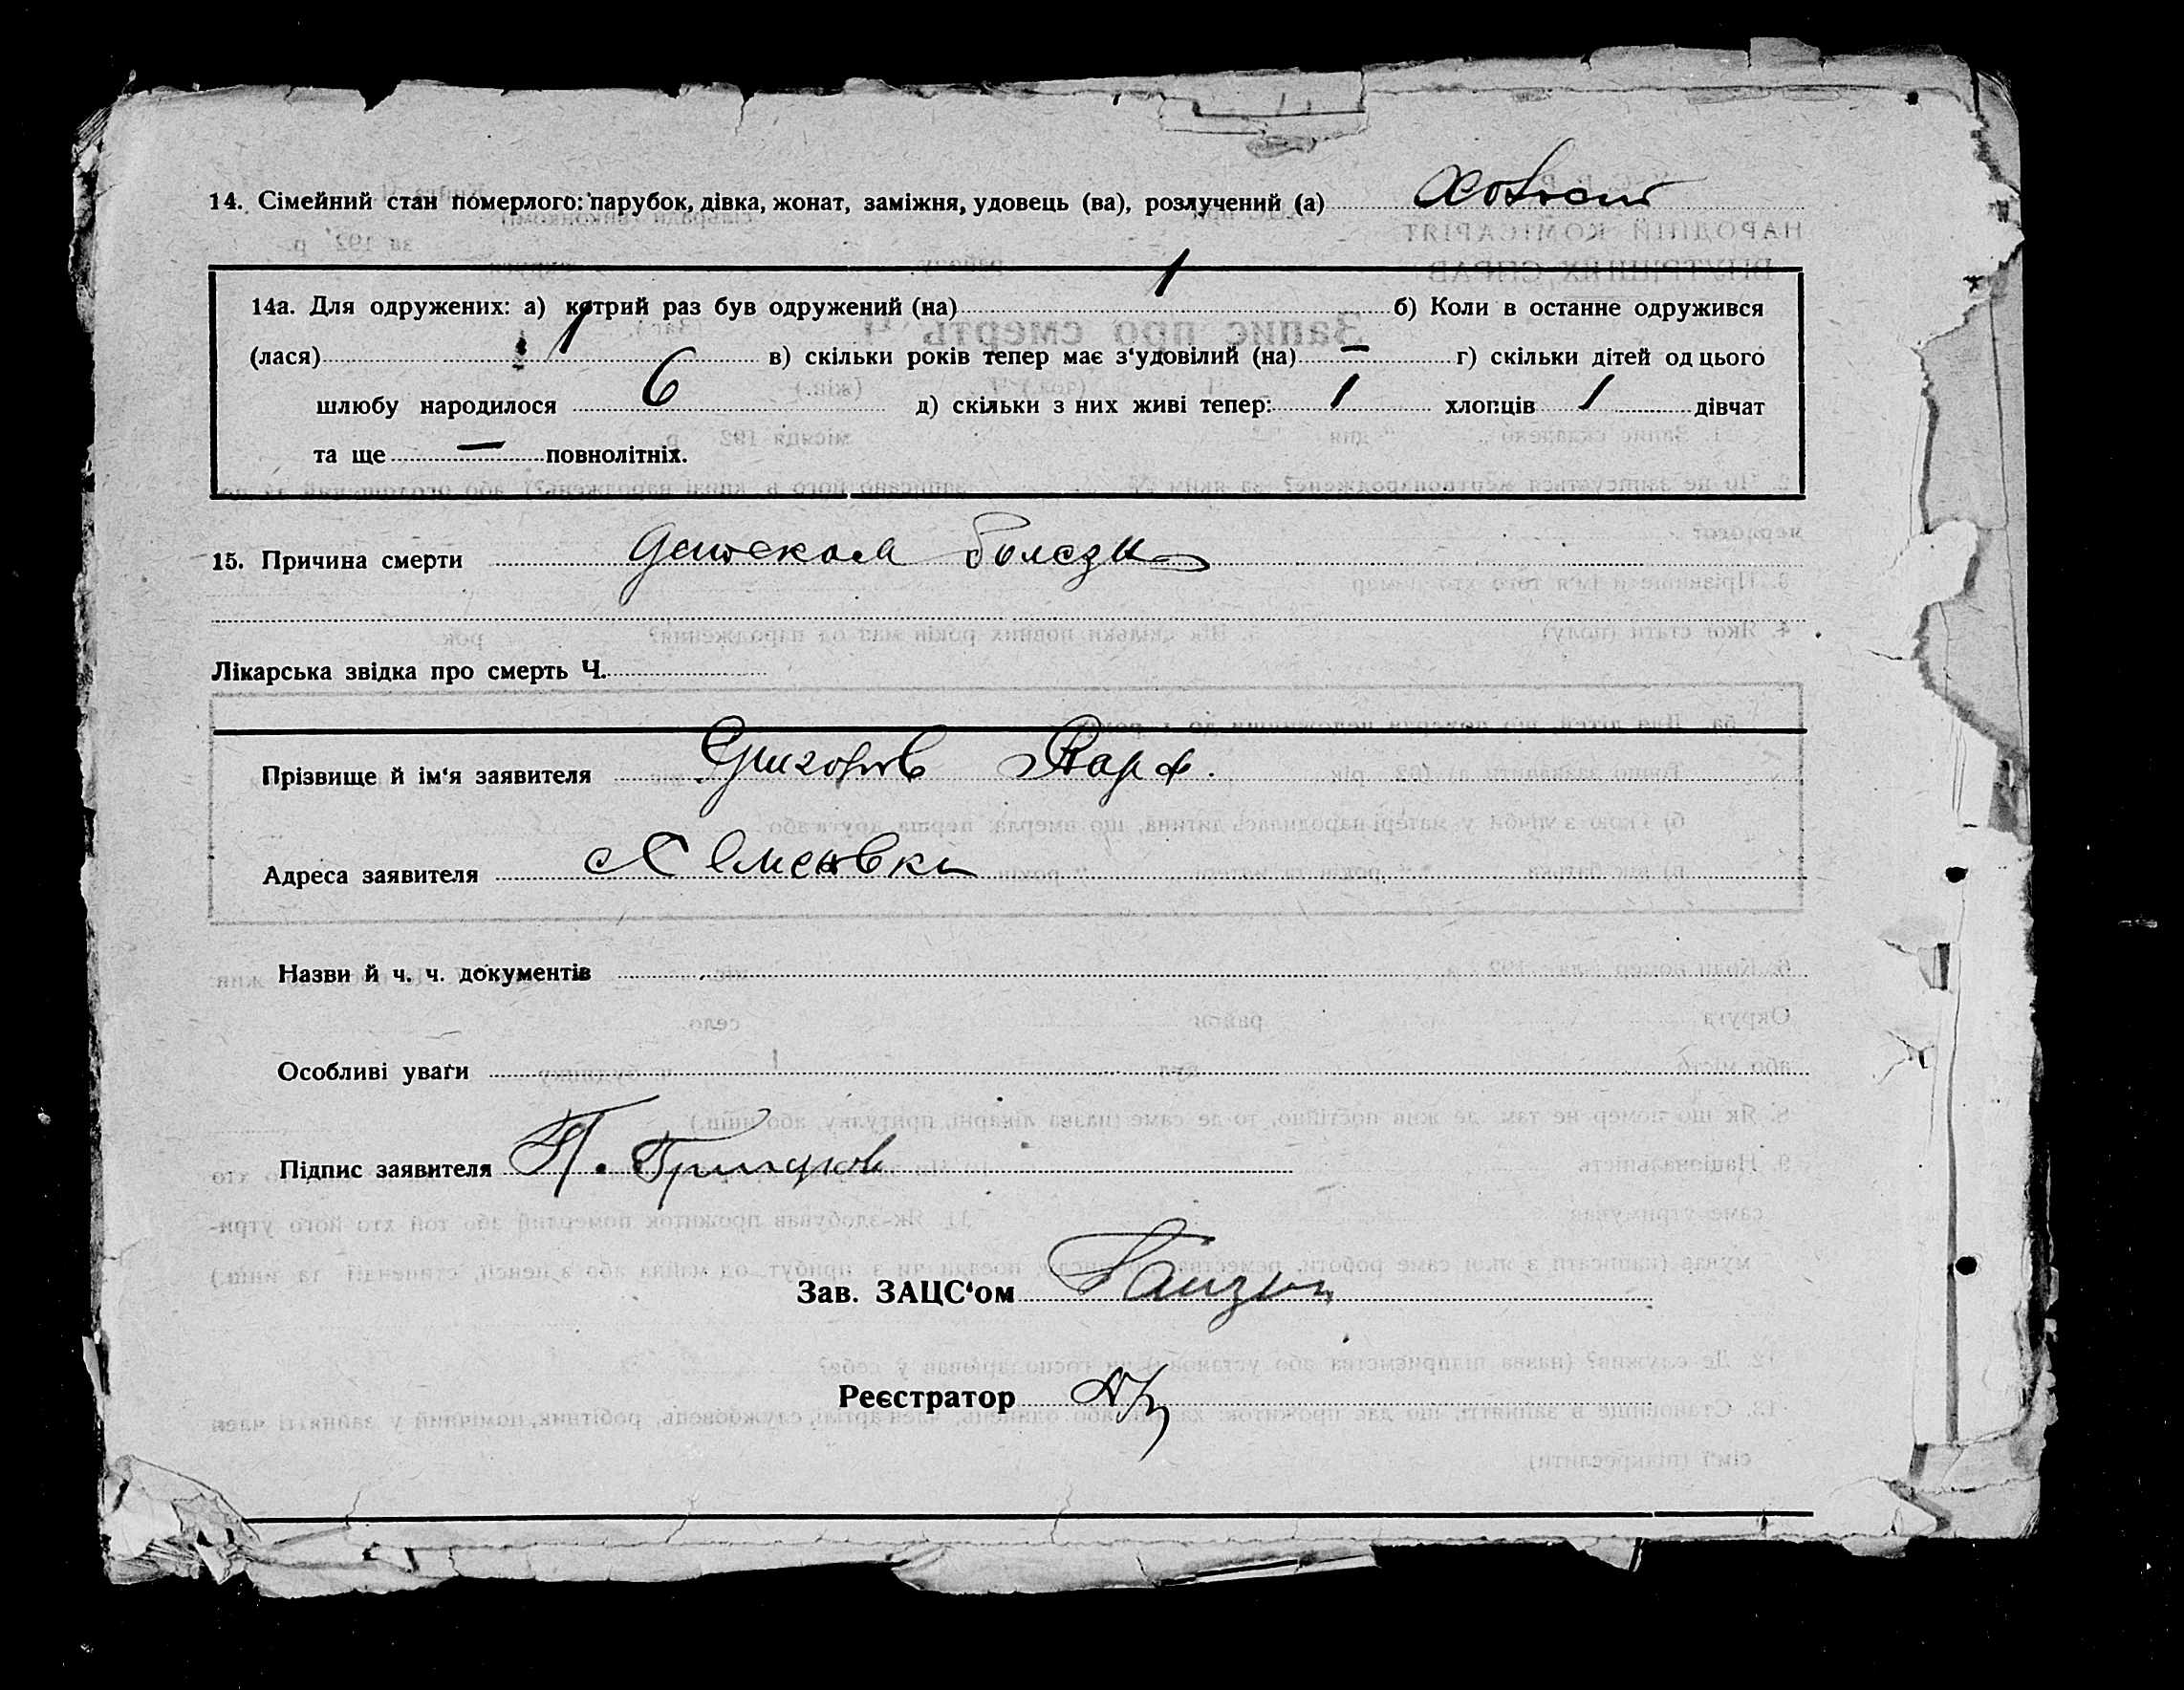 14. Сімейний стан померлого: парубок, дівка, жонат, заміжня, удовець (ва), розлучений (а)
14а. Для одружених: а) котрий раз був одружений (на) 1 б) Коли в останне одружився
(лася) 1 в) скільки років тепер має з‘удовілий (на) — г) скільки дітей од цього
шлюбу народилося 6 д) скільки з них живі тепер: 1 хлопців 1 дівчат
та ще — повнолітніх.
15. Причина смерти детская болезнь
Лікарська звідка про смерть Ч.
Прізвище й ім‘я заявителя Григоров Парф.
Адреса заявителя
Назви й ч. ч. документів
Особливі уваги
Підпис заявителя П. Григоров
Зав. ЗАЦС‘ом
Реєстратор